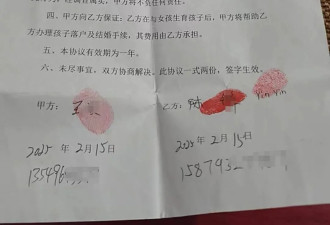 四、甲方向乙方保证：乙方在与女孩生育孩子后，甲方将帮助乙
方办理孩子落户及结婚手续，其费用由乙方承担。
五、本协议有效期为一年。
六、未尽事宜，双方协商解决。此协议一式两份，签字生效。
甲方：王
乙方：
2025年2月15日
2025年2月15日
135496
158793